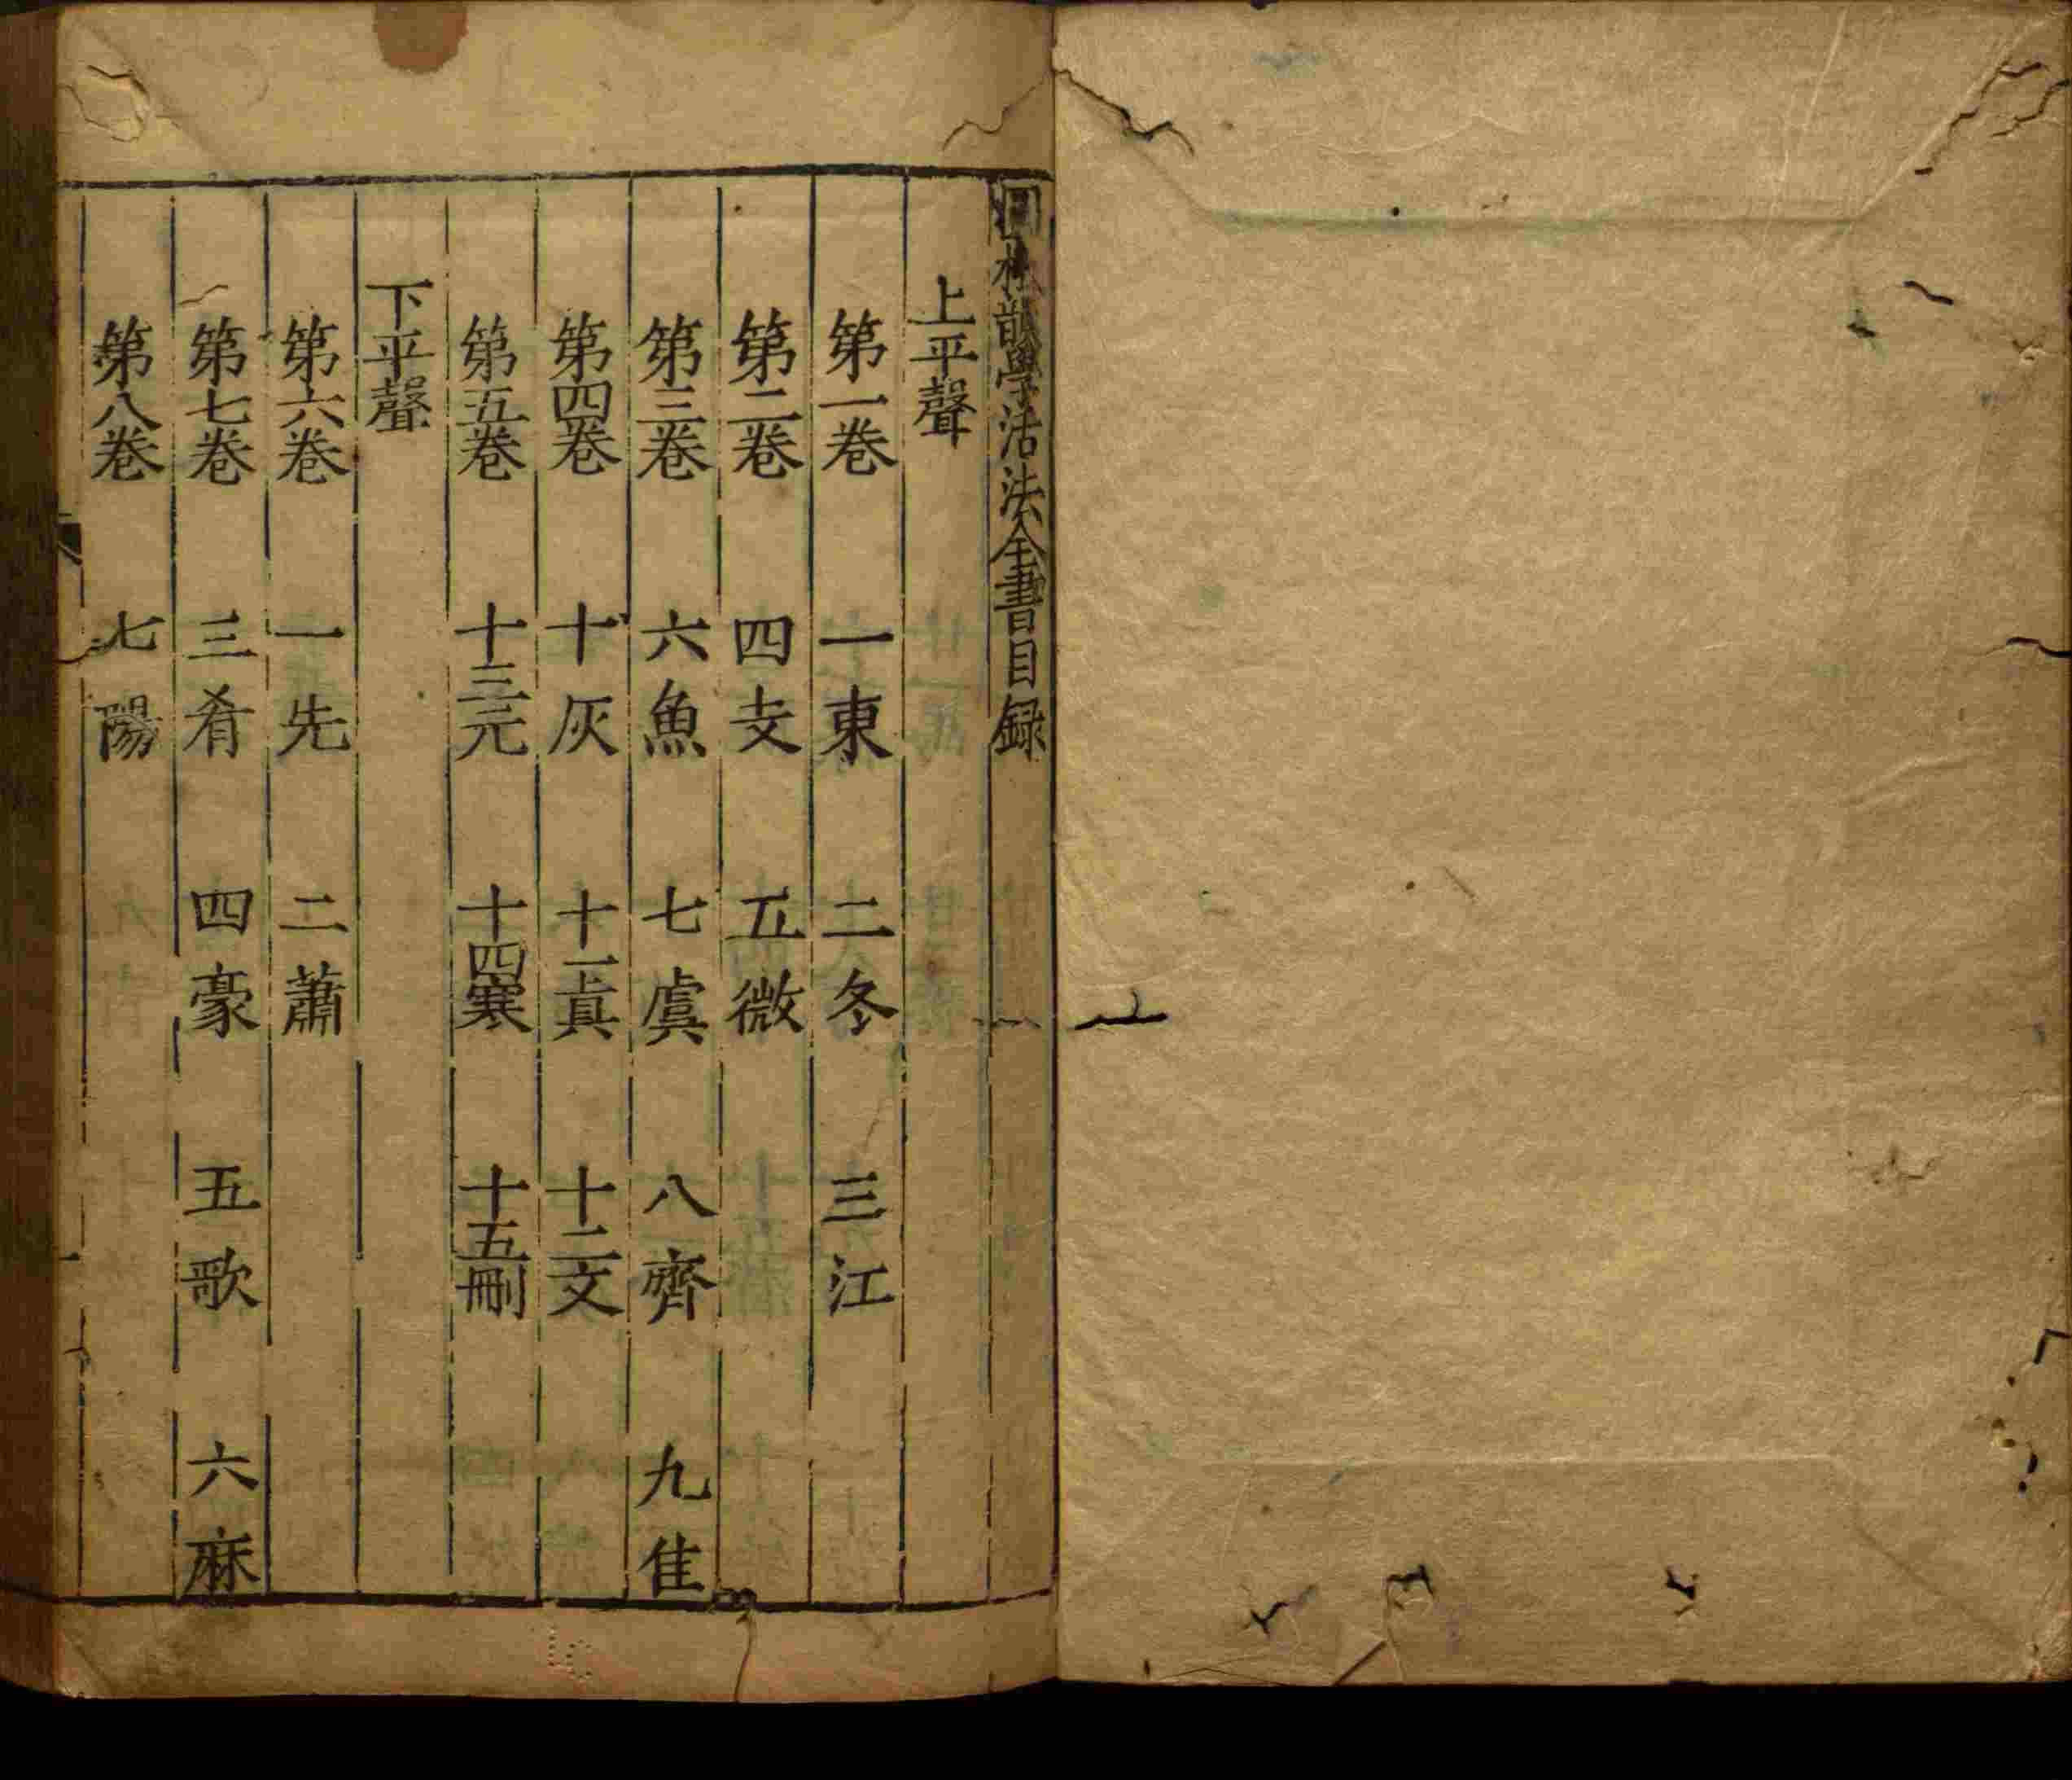 學活法全書目録
上平聲
第一卷 一東 二冬 三江
第二卷 四支 五微
第三卷 六魚 七虞 八齊 九佳
第四卷 十灰 十一眞 十二文
第五卷 十三元 十四寒 十五刪
下平聲
第六卷 一先 二蕭
第七卷 三肴 四豪 五歌 六麻
第八卷 七陽